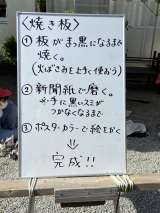 〈焼き板〉
① 板がまっ黒になるまで
焼く。
(火ばさみを上手に使おう)
② 新聞紙で磨く。
※手に黒いスミが
つかなくなるまで
③ ポスターカラーで絵をかく
⇓
完成!!